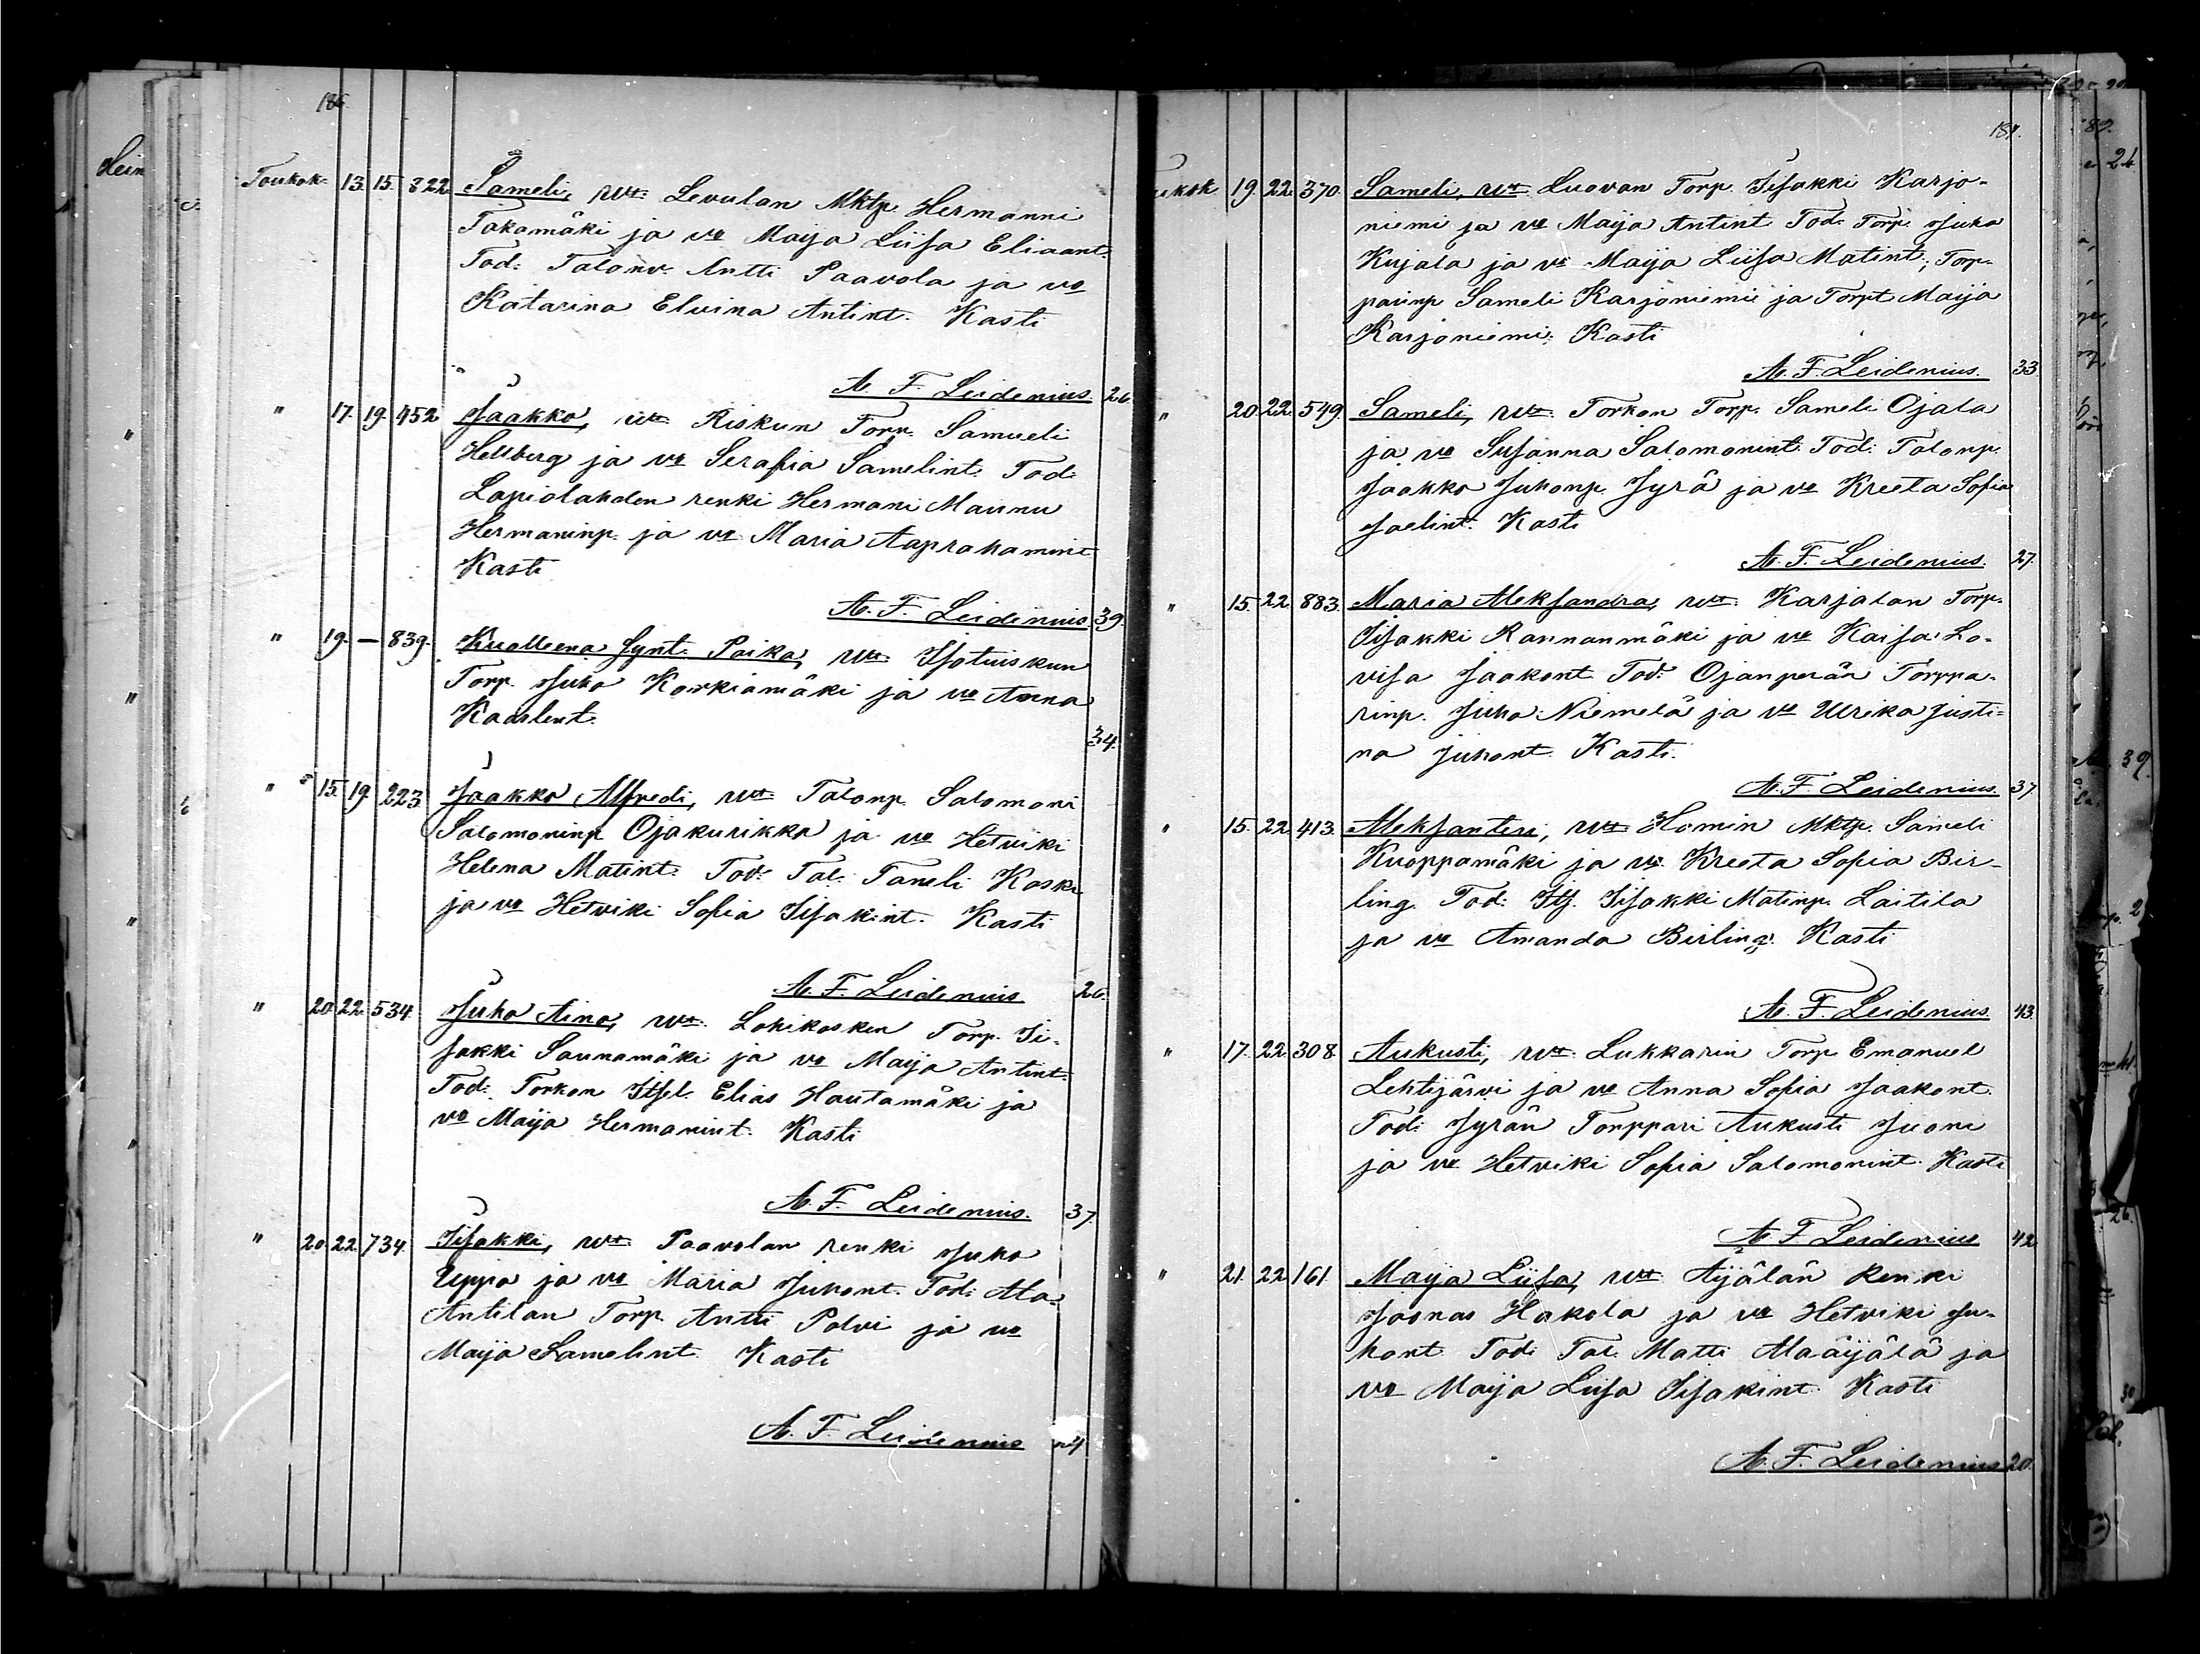 186.
Toukok. 13. 15. 822 Sameli, vtt. Levulan Mktp. Hermanni
Takamäki ja vo Maija Liisa Eliaant.
Tod: Talonv. Antti Paavola ja vo
Katarina Elvina Antint. Kasti
A. F. Leidenius. 26.
" 17. 19. 452 Jaakko, vtt. Riskun Torp. Samueli
Hellberg ja vo Serafia Samelint. Tod:
Lapiolahden renki Hermani Maunu
Hermaninp. ja vo Maria Aaprahamint
Kasti
A. F. Leidenius. 39.
" 19. — 839. Kuolleena synt. Poika, vtt. Isotuiskun
Torp. Juho Korkiamäki ja vo Anna
Kaarlent.
34.
" 15. 19. 223 Jaakko Alfredi, vtt. Talonp. Salomoni
Salomoninp. Ojakurikka ja vo Hetviki
Helena Matint. Tod: Tal. Taneli Koski
ja vo Hetviki Sofia Iisakint. Kasti
A. F. Leidenius 26.
" 20. 22. 534. Juho Aino, vtt. Lohikosken Torp. Ii-
sakki Saunamäki ja vo Maija Antint.
Tod: Torkon Itsel. Elias Hautamäki ja
vo Maija Hermanint. Kasti
A. F. Leidenius. 37.
" 20. 22. 734. Iisakki, vtt. Paavolan renki Juho
Uppa ja vo Maria Juhont. Tod: Ala-
Antilan Torp. Antti Polvi ja vo
Maija Samelint. Kasti
A. F. Leidenius
187.
ukok 19. 22. 370. Sameli, vtt. Luovan Torp. Iisakki Karjo-
niemi ja vo Maija Antint Tod: Torp. Juho
Kujala ja vo Maija Liisa Matint.; Torp-
parinp Sameli Karjoniemi ja Torpt Maija
Karjoniemi. Kasti
A. F. Leidenius. 33.
" 20. 22. 549. Sameli, vtt. Torkon Torp. Sameli Ojala
ja vo Susanna Salomonint. Tod: Talonp.
Jaakko Juhonp. Jyrä ja vo Kreeta Sofia
Joelint. Kasti
A. F. Leidenius. 27.
" 15. 22. 883. Maria Aleksandra, vtt. Karjalan Torp.
Iisakki Rannanmäki ja vo Kaisa Lo-
visa Jaakont. Tod: Ojanperän Torppa-
rinp. Juho Niemelä ja vo Ulrika Justi-
na Juhont. Kasti.
A. F. Leidenius 37.
" 15. 22. 413. Aleksanteri, vtt. Homin Mktp. Sameli
Kuoppamäki ja vo Kreeta Sofia Bir-
ling. Tod: Its. Iisakki Matinp. Laitila
ja vo Amanda Birling. Kasti
A. F. Leidenius. 43.
" 17. 22. 308. Aukusti, vtt. Lukkarin Torp Emanuel
Lehtijärvi ja vo Anna Sofia Jaakont.
Tod: Jyrän Torppari Aukusti Juoni
ja vo Hetviki Sofia Salomonint. Kasti
A. F. Leidenius 42
" 21. 22. 161. Maija Liisa, vtt. Äijälän Renki
Joonas Hakola ja vo Hetviki Ju-
hont Tod: Tal. Matti Alaäijälä ja
vo Maija Liisa Iisakint. Kasti
A. F. Leidenius 20.